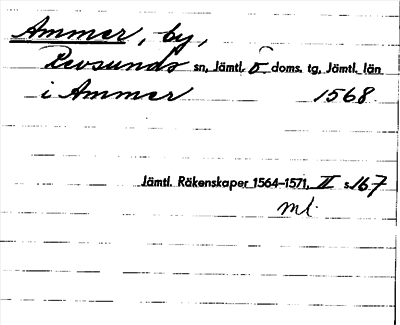 Ammer, by,
Revsunds sn, Jämtl. ö doms. tg, Jämtl. län
i Ammer 1568
Jämtl. Räkenskaper 1564-1571, II s. 167
ml